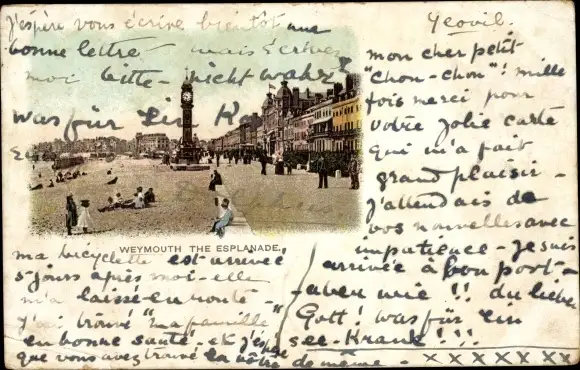 Yeovil.
mon cher petit
"Chon-chon"! mille
fois merci pour
votre jolie carte
qui m'a fait
grand plaisir -
J'attendais de
vos nouvelles avec
impatience - Je suis
arrivée à bon port -
aber wie !! du lieber
Gott! was für ein
see-Krank !!!
ma bicyclette est arrivée
5 jours après moi - elle
m'a laissé en route -
J'ai trouvé "ma famille"
en bonne santé - et j'espère
que vous avez trouvé la vôtre de même -
J'espère vous écrire bientôt une
bonne lettre - mais écrivez
moi bitte - nicht wahr?
was für ein
WEYMOUTH THE ESPLANADE.
x x x x x x x x